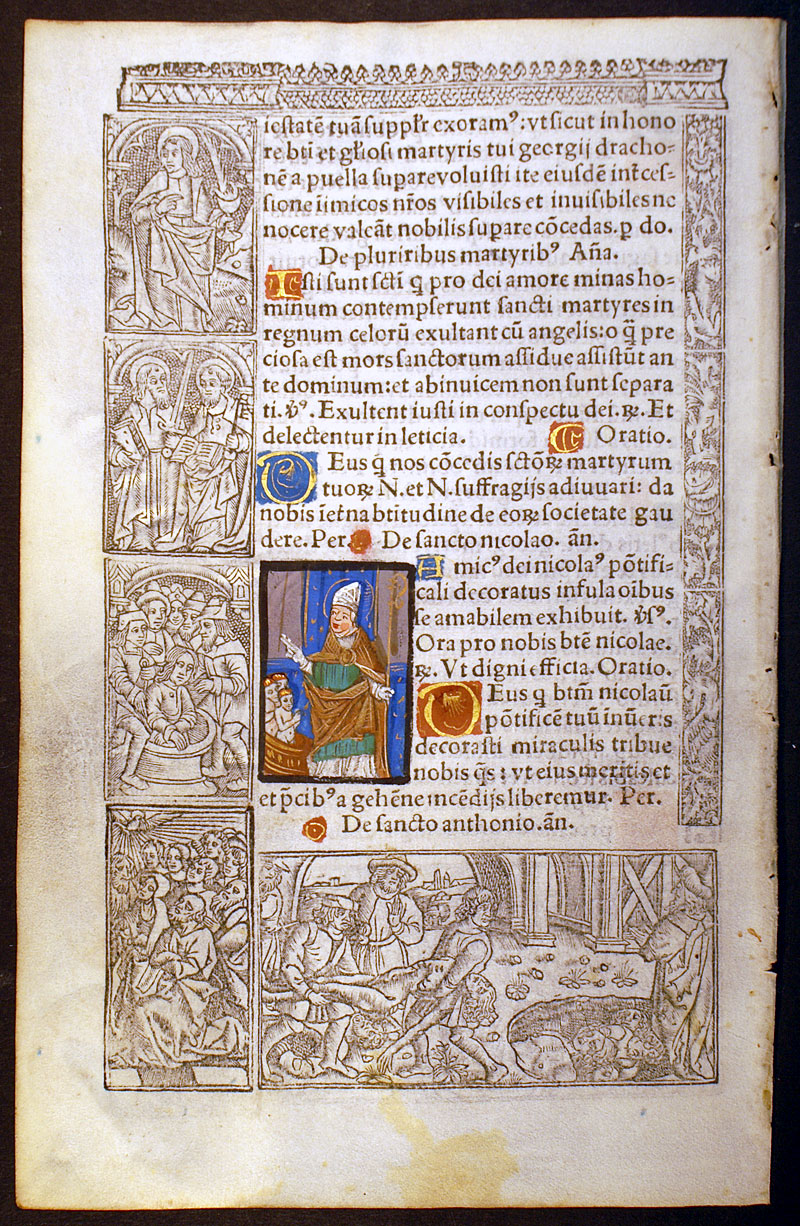 iestatē tuā supplr exoramꝰ: vt sicut in hono
re bti et glosi martyris tui georgij dracho⸗
nē a puella suparevoluisti ite eiusdē intces⸗
sione iimicos nros visibiles et inuisibiles ne
nocere valeāt nobilis supare cōcedas. p do.
De pluriribus martyribꝰ Aña.
Isti sunt scti q pro dei amore minas ho⸗
minum contempserunt sancti martyres in
regnum celorū exultant cū angelis: o q̄ pre
ciosa est mors sanctorum assidue assistūt an
te dominum: et abinuicem non sunt separa
ti. v̕ꝰ. Exultent iusti in conspectu dei. ꝶ. Et
delectentur in leticia. Oratio.
DEus q̄ nos cōcedis sctōꝝ martyrum
tuoꝝ N. et N. suffragijs adiuuari: da
nobis īetna btitudine de eoꝝ societate gau
dere. Per. De sancto nicolao. añ.
Amicꝰ dei nicolaꝰ pōtifi⸗
cali decoratus infula oībus
se amabilem exhibuit. v̕sꝰ.
Ora pro nobis btē nicolae.
ꝶ. Vt digni efficia. Oratio.
DEus q btm nicolaū
pōtificē tuū īnūer:s
decorasti miraculis tribue
nobis q̄s: vt eius meritis et
et p̄cibꝰ a gehēne incēdijs liberemur. Per.
De sancto anthonio. añ.